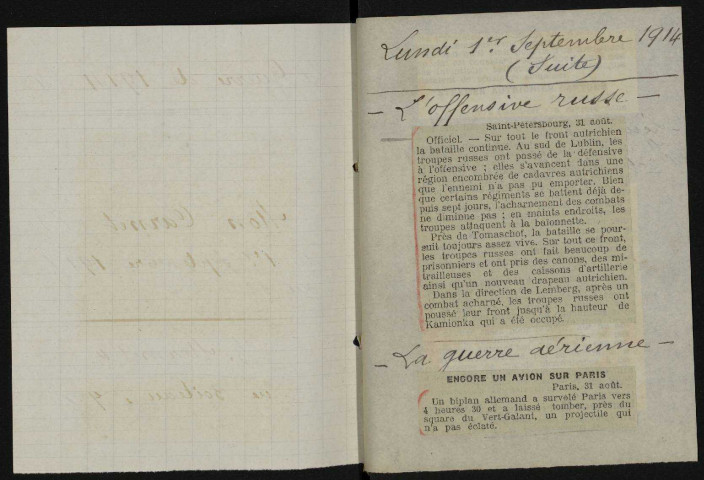 Lundi 1er Septembre 1914
(Suite)
— L'offensive russe —
Saint-Pétersbourg, 31 août.
Officiel. — Sur tout le front autrichien
la bataille continue. Au sud de Lublin, les
troupes russes ont passé de la défensive
à l'offensive ; elles s'avancent dans une
région encombrée de cadavres autrichiens
que l'ennemi n'a pas pu emporter. Bien
que certains régiments se battent déjà de-
puis sept jours, l'acharnement des combats
ne diminue pas ; en maints endroits, les
troupes attaquent à la baïonnette.
Près de Tomaschof, la bataille se pour-
suit toujours assez vive. Sur tout ce front,
les troupes russes ont fait beaucoup de
prisonniers et ont pris des canons, des mi-
trailleuses et des caissons d'artillerie
ainsi qu'un nouveau drapeau autrichien.
Dans la direction de Lemberg, après un
combat acharné, les troupes russes ont
poussé leur front jusqu'à la hauteur de
Kamionka qui a été occupé.
— La guerre aérienne —
ENCORE UN AVION SUR PARIS
Paris, 31 août.
Un biplan allemand a survolé Paris vers
4 heures 30 et a laissé tomber, près du
square du Vert-Galant, un projectile qui
n'a pas éclaté.